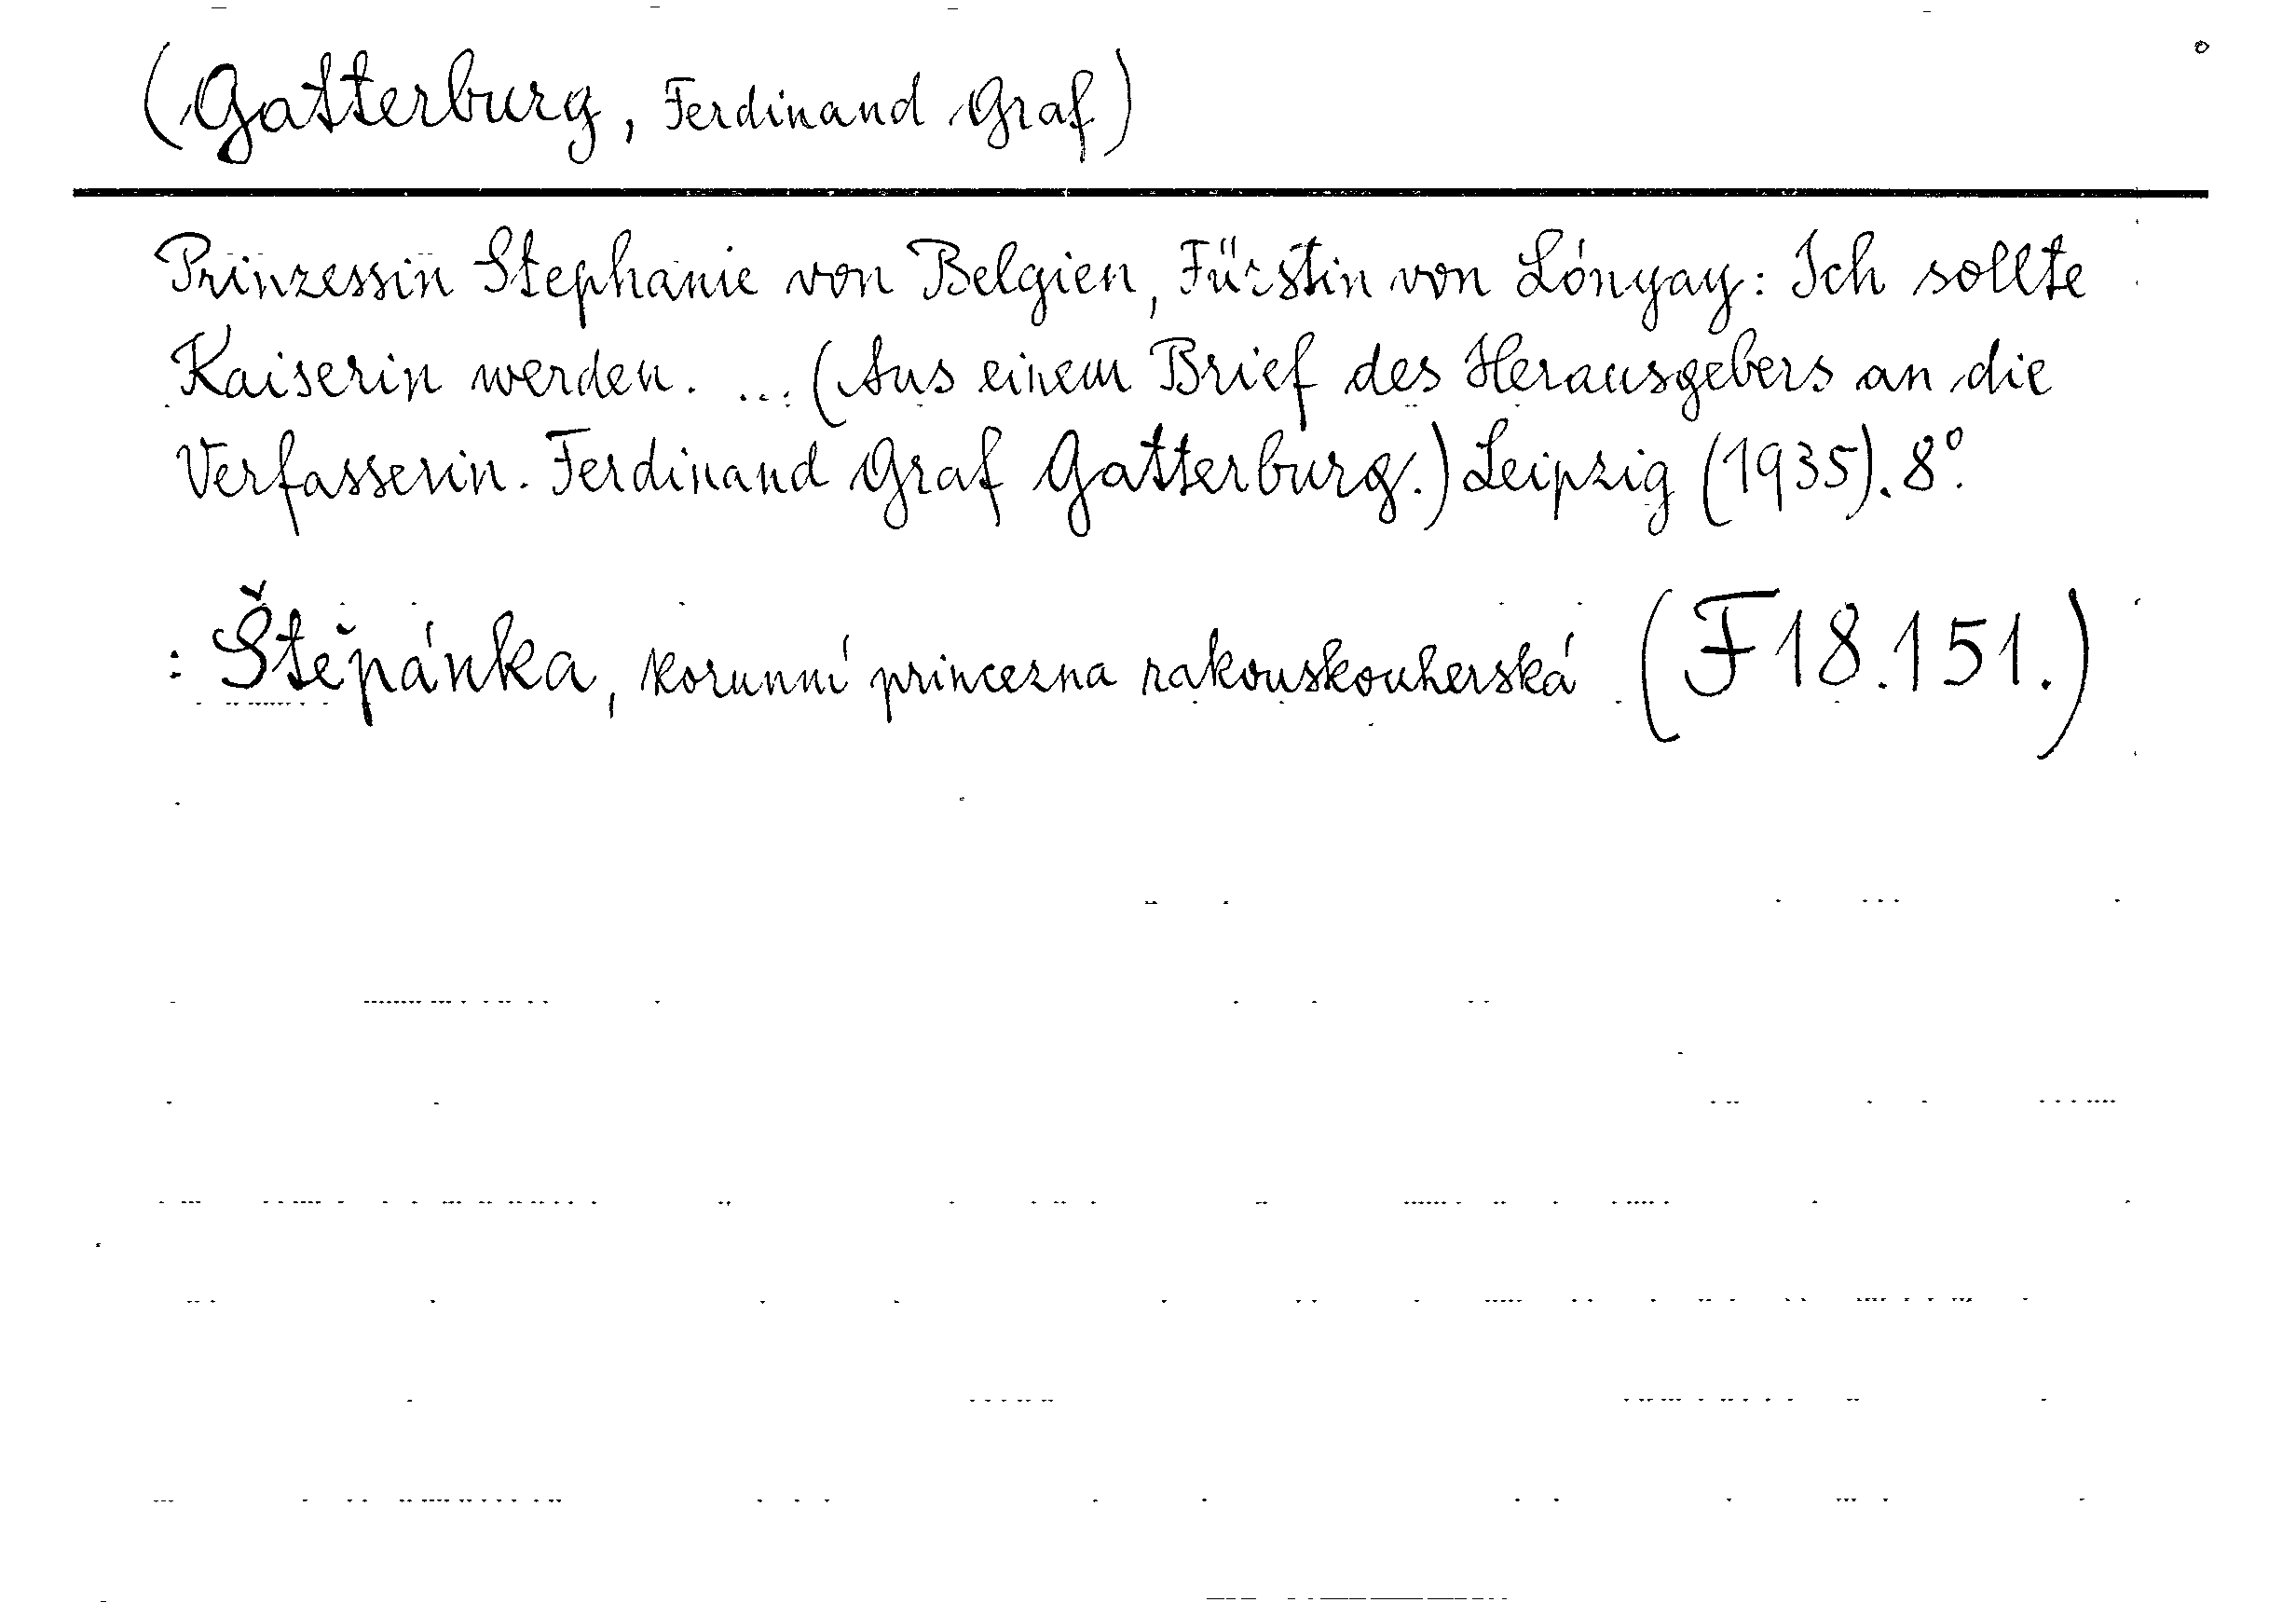 (Gatterburg, Ferdinand Graf)
Prinzessin Stephanie von Belgien, Fürstin von Lónyay: Ich sollte
Kaiserin werden. ... (Aus einem Brief des Herausgebers an die
Verfasserin. Ferdinand Graf Gatterburg.) Leipzig (1935). 8°.
: Štěpánka, korunní princezna rakouskouherská (F18.151.)